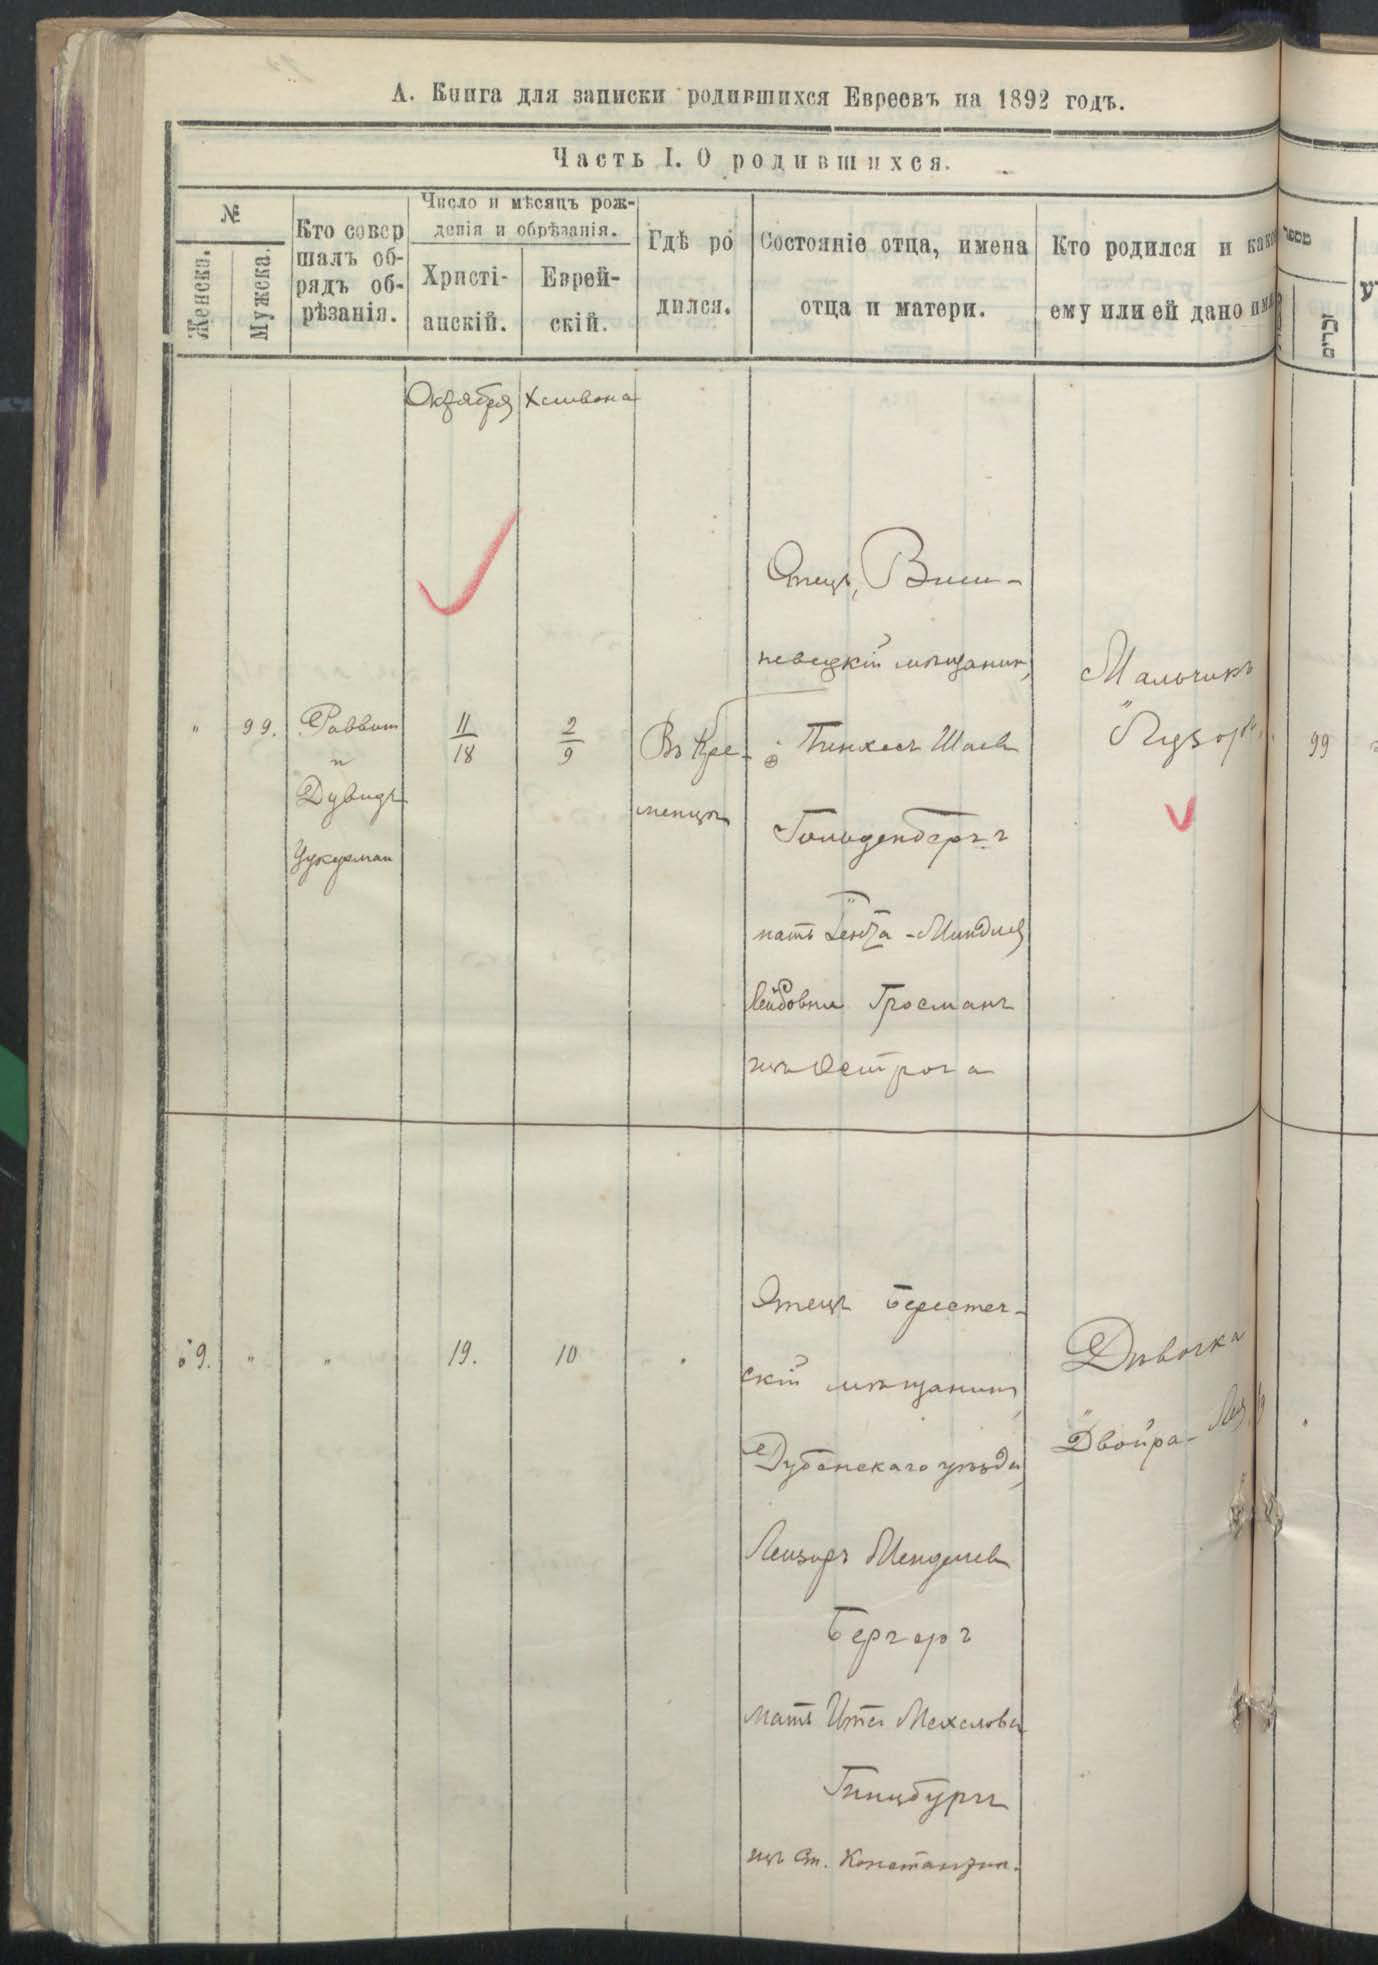 А. Книга для записки родившихся Евреевъ на 1892 годъ.
Часть I. О родившихся.
№
Женска.
Мужска.
Кто совер
шалъ об-
рядъ об-
рѣзанія.
Число и мѣсяцъ рож-
денія и обрѣзанія.
Христі-
анскій.
Еврей-
скій.
Гдѣ ро
дился.
Состояніе отца, имена
отца и матери.
Кто родился и како
ему или ей дано имя
מספר
זכרים
Октября
Хешвона
"
99.
Раввин
и
Дувидъ
Цукерман
11
18
2
9
Въ Кре-
менцѣ
Отецъ, Виш-
невецкій мѣщанин,
Пинхесъ Шаев
Гольденбергъ
мать Гентa-Миндля
Лейбовна Гросманъ
изъ Острога
Мальчикъ
Лузоръ
99
9.
"
"
19.
10
"
Отецъ Берестеч-
скій мѣщанинъ,
Дубенскаго уѣзда,
Лейзоръ Менделев
Бергеръ
мать Ита Мехелова
Гинцбургъ
изъ Ст. Константин.
Дѣвочка
Двойра-